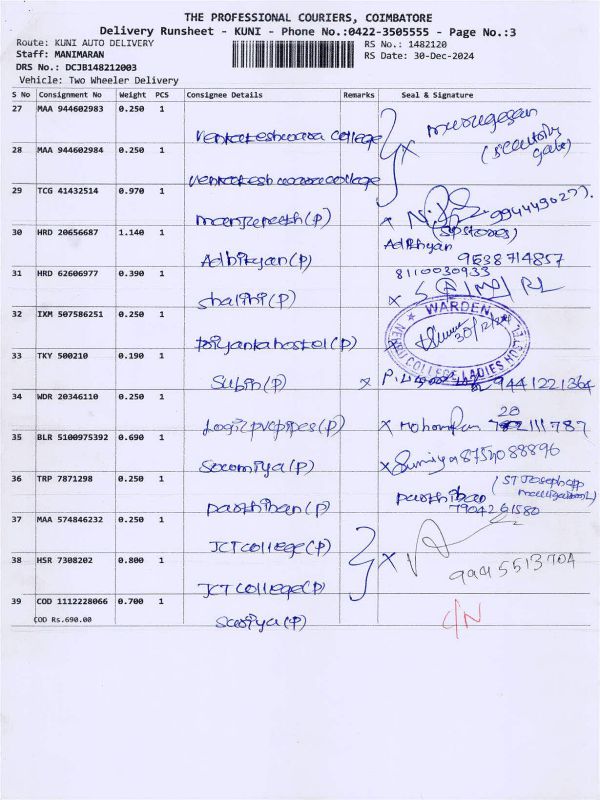 THE PROFESSIONAL COURIERS, COIMBATORE
Delivery Runsheet - KUNI - Phone No.:0422-3505555 - Page No.:3
Route: KUNI AUTO DELIVERY RS No.: 1482120
Staff: MANIMARAN RS Date: 30-Dec-2024
DRS No.: DCJB148212003
Vehicle: Two Wheeler Delivery
S No Consignment No Weight PCS Consignee Details Remarks Seal & Signature
27 MAA 944602983 0.250 1
Venkateshwara college murugesan
(Security
Gate)
28 MAA 944602984 0.250 1
Venkateshwara college
29 TCG 41432514 0.970 1
Manjuneeth(P)
(SP Stores)
30 HRD 20656687 1.140 1 Adhityan
Adhityan(P) 9538714857
31 HRD 62606977 0.390 1 8110030933
Shalini(P)
32 IXM 507586251 0.250 1 WARDEN
30/12/24
NEHRU COLLEGE LADIES HOSTEL
Priyanka hostel(P)
33 TKY 500210 0.190 1
Subin(P) 9441221364
34 WDR 20346110 0.250 1
Logic pvc pipes(P)
35 BLR 5100975392 0.690 1
Sowmiya(P) Sumiya 8754088896
36 TRP 7871298 0.250 1
Parthiban(P) Parthiban
7904261580
37 MAA 574846232 0.250 1
JCT college(P)
38 HSR 7308202 0.800 1 9445513704
JCT college(P)
39 COD 1112228066 0.700 1 C/N
COD Rs.690.00